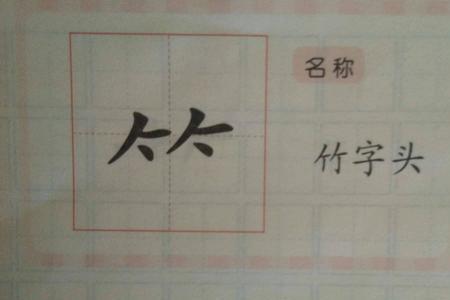 ⺮
名称
竹字头